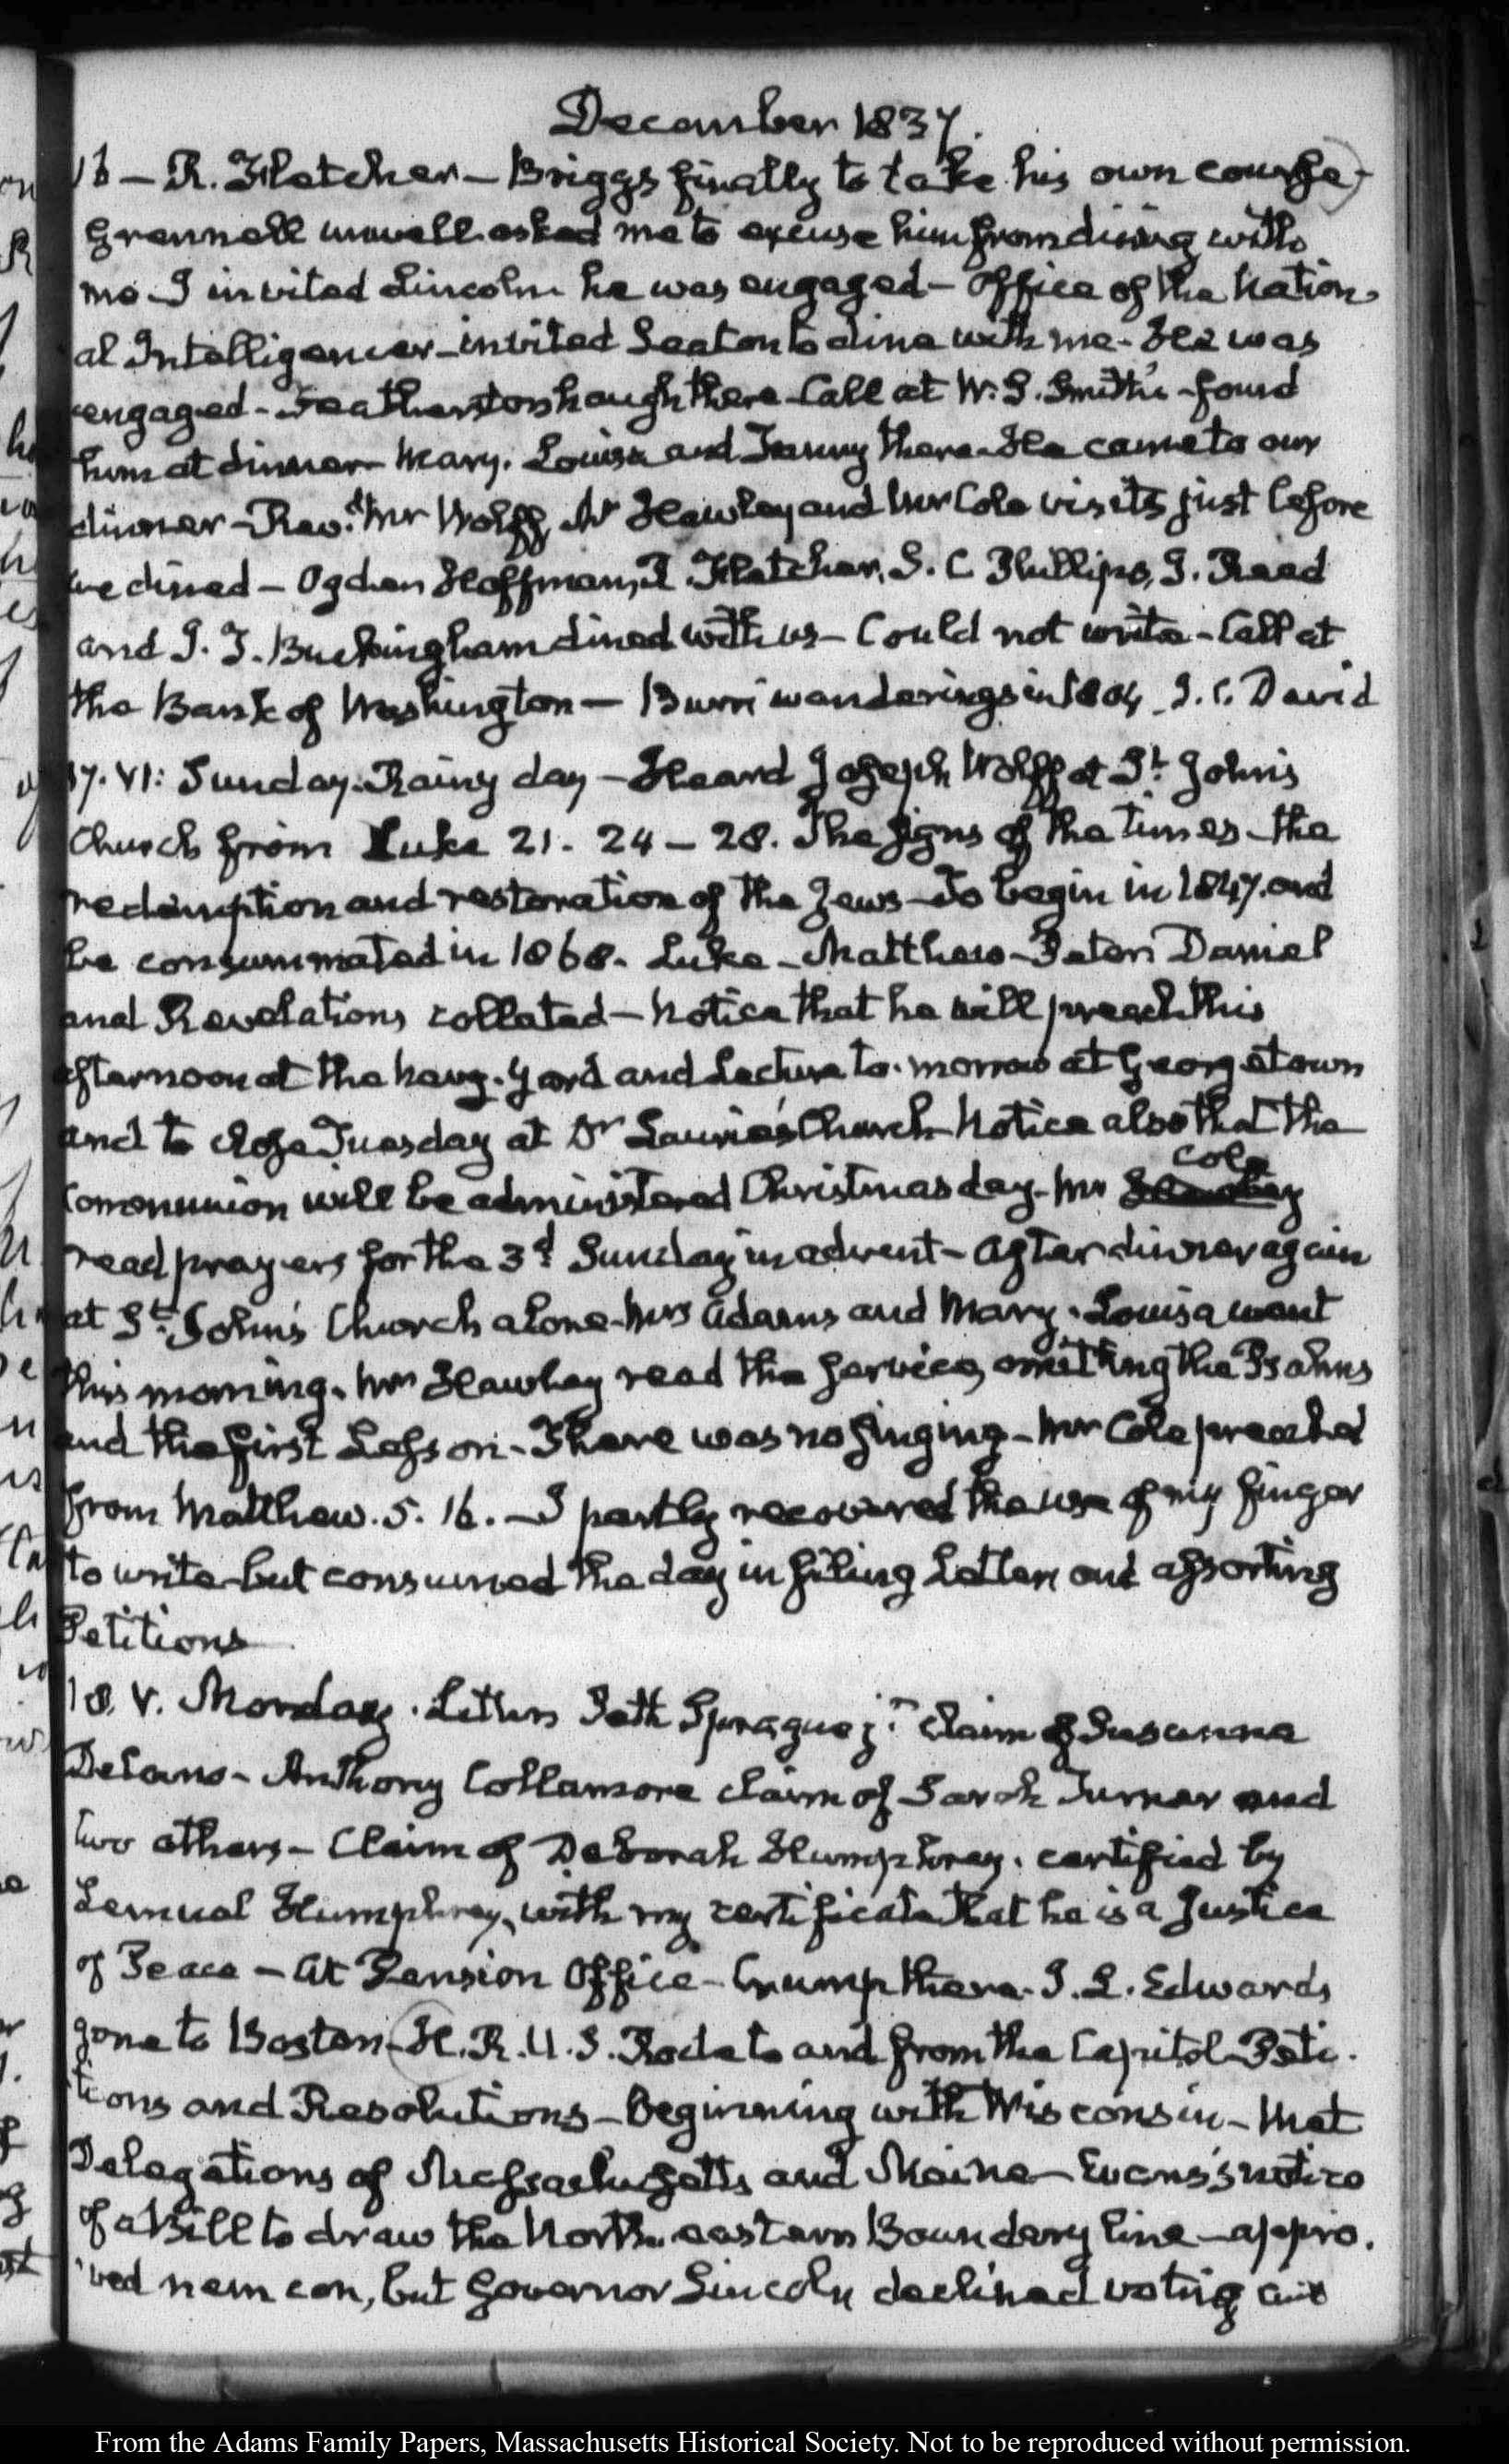 December 1837.
16 — R. Fletcher — Briggs finally to take his own course)-
Grennell unwell asked me to excuse him from dining with
me I invited Lincoln he was engaged — Office of the Nation-
al Intelligencer — invited Seaton to dine with me — He was
engaged — Featherstonhaugh there — Call at W. S. Smith's — found
him at dinner — Mary. Louisa and Fanny there — He came to our
dinner — Revd. Mr Wolff, Mr Hawley and Mr Cole visits just before
we dined — Ogden Hoffman, R. Fletcher, S. C. Phillips, J. Reed
and J. T. Buckingham dined with us — Could not write — Call at
the Bank of Washington — Burr wanderings in 1804 David
17. VI: Sunday. Rainy day — Heard Joseph Wolff at St. John's
Church from Luke 21. 24 — 28. The signs of the times — the
redemption and restoration of the Jews — to begin in 1847. and
be consummated in 1868. Luke — Matthew — Peter Daniel
and Revelations collated — Notice that he will preach this
afternoon at the Navy. Yard and Lecture to. morrow at Georgetown
and to close Tuesday at Dr Laurie's Church Notice also that the
Cole
Communion will be administered Christmas day — Mr Hawley
read prayers for the 3d. Sunday in advent — After dinner again
at St. John's Church alone — Mrs Adams and Mary. Louisa went
this morning. Mr Hawley read the service, omitting the Psalms
and the first Lesson — There was no singing — Mr Cole preached
from Matthew. 5. 16. — I partly recovered the use of my finger
to write — but consumed the day in filing Letters and assorting
Petitions
18. V. Monday. Letters Seth Sprague jr. claim of Susanna
Delano — Anthony Collamore claim of Sarah Turner and
two others — Claim of Deborah Humphrey. certified by
Lemuel Humphrey, with my certificate that he is a Justice
of Peace — At Pension Office — Crump there. J. L. Edwards
gone to Boston — H. R. U. S. Rode to and from the Capitol — Peti-
tions and Resolutions — Beginning with Wisconsin — Met
Delegations of Massachusetts and Maine — Evans's notice
of a Bill to draw the North. eastern Boundary line — appro-
ved nem con, but Governor Lincoln declined voting
From the Adams Family Papers, Massachusetts Historical Society. Not to be reproduced without permission.